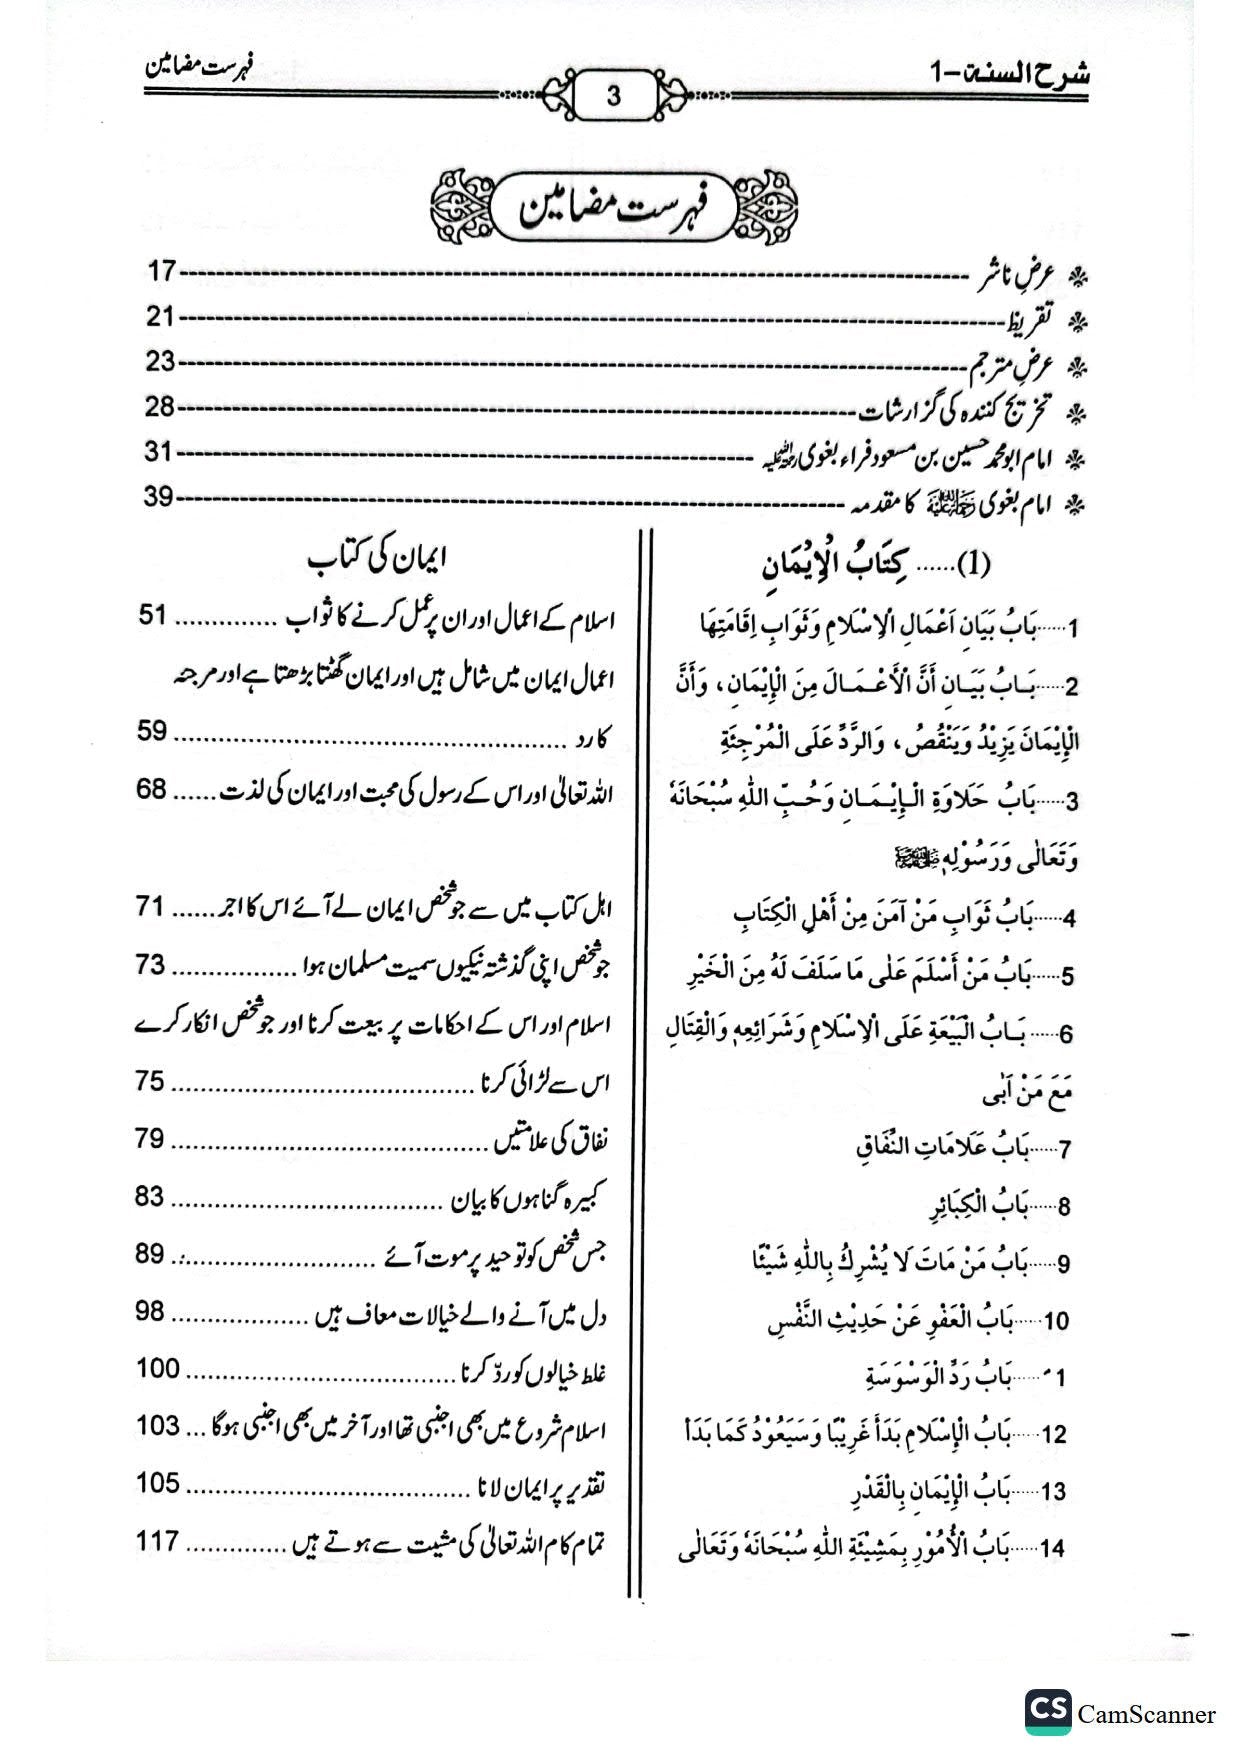 شرح السنة-1
3
فہرست مضامین
فہرست مضامین
عرضِ ناشر 17
تقریظ 21
عرضِ مترجم 23
تخریج کنندہ کی گزارشات 28
امام ابو محمد حسین بن مسعود فراء بغوی رحمۃ اللہ علیہ 31
امام بغوی رحمۃ اللہ علیہ کا مقدمہ 39
(1)...... كِتَابُ الْاِيْمَانِ
ایمان کی کتاب
1......بَابُ بَيَانِ اَعْمَالِ الْاِسْلَامِ وَثَوَابِ اِقَامَتِهَا
اسلام کے اعمال اور ان پر عمل کرنے کا ثواب .............. 51
2......بَابُ بَيَانِ أَنَّ الْأَعْمَالَ مِنَ الْإِيْمَانِ، وَأَنَّ
اعمال ایمان میں شامل ہیں اور ایمان گھٹتا بڑھتا ہے اور مرجئہ
الْإِيْمَانَ يَزِيْدُ وَيَنْقُصُ، وَالرَّدُّ عَلَى الْمُرْجِئَةِ
کا رد ...................................................... 59
3......بَابُ حَلَاوَةِ الْإِيْمَانِ وَحُبِّ اللّٰهِ سُبْحَانَهٗ
اللہ تعالیٰ اور اس کے رسول کی محبت اور ایمان کی لذت ...... 68
وَتَعَالٰى وَرَسُوْلِهٖ ﷺ
4......بَابُ ثَوَابِ مَنْ آمَنَ مِنْ أَهْلِ الْكِتَابِ
اہل کتاب میں سے جو شخص ایمان لے آئے اس کا اجر ...... 71
5......بَابُ مَنْ أَسْلَمَ عَلٰى مَا سَلَفَ لَهُ مِنَ الْخَيْرِ
جو شخص اپنی گذشتہ نیکیوں سمیت مسلمان ہوا ................. 73
6......بَابُ الْبَيْعَةِ عَلَى الْاِسْلَامِ وَشَرَائِعِهٖ وَالْقِتَالِ
اسلام اور اس کے احکامات پر بیعت کرنا اور جو شخص انکار کرے
مَعَ مَنْ اَبٰى
اس سے لڑائی کرنا ........................................ 75
7......بَابُ عَلَامَاتِ النِّفَاقِ
نفاق کی علامتیں .......................................... 79
8......بَابُ الْكِبَائِرِ
کبیرہ گناہوں کا بیان .................................... 83
9......بَابُ مَنْ مَاتَ لَا يُشْرِكُ بِاللّٰهِ شَيْئًا
جس شخص کو توحید پر موت آئے ......................... 89
10......بَابُ الْعَفْوِ عَنْ حَدِيْثِ النَّفْسِ
دل میں آنے والے خیالات معاف ہیں .................. 98
1......بَابُ رَدِّ الْوَسْوَسَةِ
غلط خیالوں کو ردّ کرنا .................................... 100
12......بَابُ الْإِسْلَامِ بَدَأَ غَرِيْبًا وَسَيَعُوْدُ كَمَا بَدَأَ
اسلام شروع میں بھی اجنبی تھا اور آخر میں بھی اجنبی ہوگا ... 103
13......بَابُ الْإِيْمَانِ بِالْقَدْرِ
تقدیر پر ایمان لانا ...................................... 105
14......بَابُ الْأُمُوْرِ بِمَشِيْئَةِ اللّٰهِ سُبْحَانَهٗ وَتَعَالٰى
تمام کام اللہ تعالیٰ کی مشیت سے ہوتے ہیں .............. 117
CS CamScanner